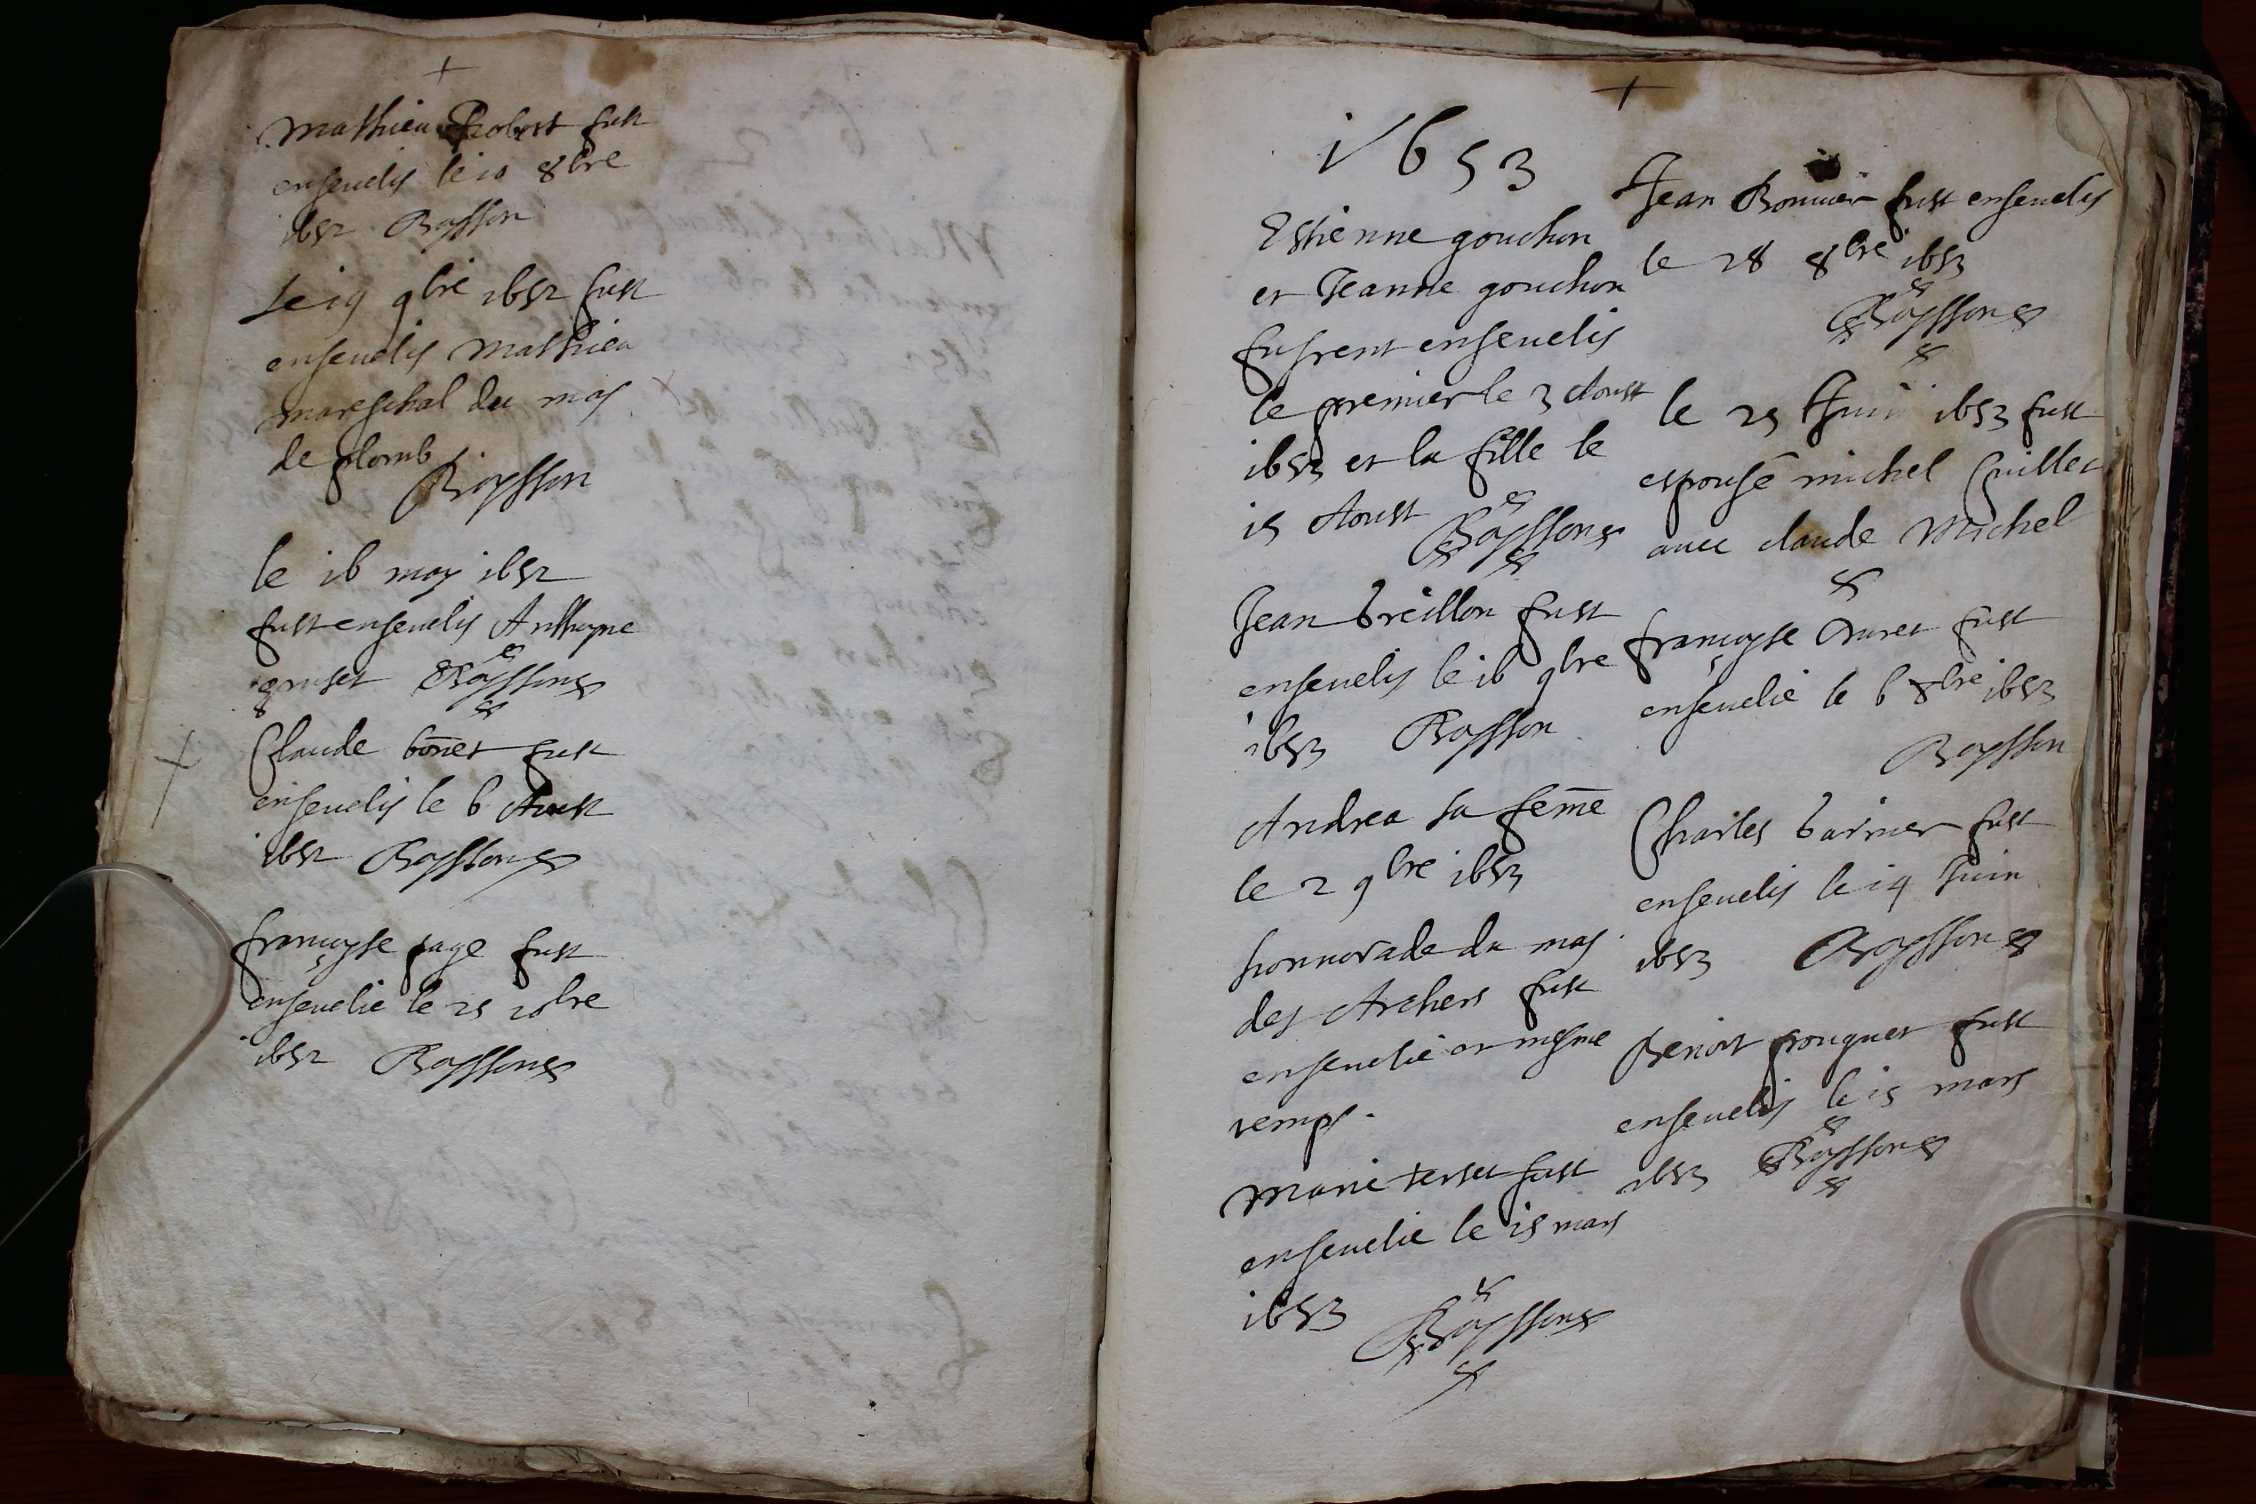 Mathieu Robert fust
ensevelis le 10 8bre
1652 Boysson
Le 19 9bre 1652 fust
ensevelis Mathieu
mareschal du mas
de plomb
Boysson
le 16 may 1652
fust ensevelis Anthoyne
gouset Boysson
Claude bonet fust
ensevelis le 6 Aoust
1652 Boysson
françoyse page fust
ensevelie le 25 10bre
1652 Boysson
1653
Estienne gouchon
et Jeanne gouchon
fusrent ensevelis
le premier le 3 Aoust
1653 et la fille le
15 Aoust Boysson
Jean breillon fust
ensevelis le 16 9bre
1653 Boysson
Andrea sa feme
le 2 9bre 1653
honnorade du mas
des Archers fust
ensevelie et mesme
temps.
Marie terset fust
ensevelie le 15 mars
1653 Boysson
Jean Bonnier fust ensevelis
le 28 8bre 1653
Boysson
le 25 Juin 1653 fust
espousé michel
avec claude Michel
françoyse fust
ensevelie le 6 8bre 1653
Boysson
Charles barnier fust
ensevelis le 14 Juin
1653 Boysson
Benoit fouquet fust
ensevelis le 15 mars
1653 Boysson